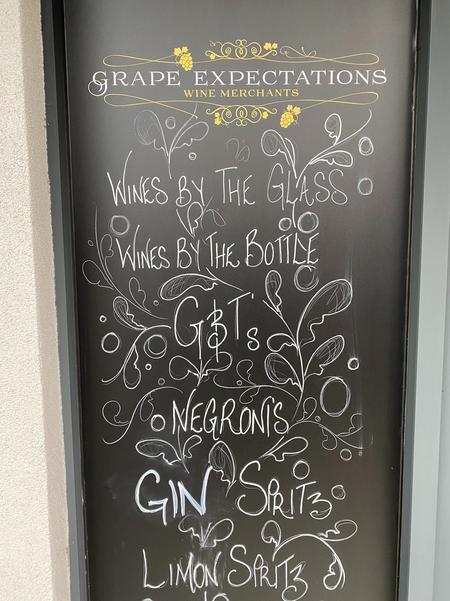 GRAPE EXPECTATIONS
WINE MERCHANTS
WINES BY THE GLASS
WINES BY THE BOTTLE
G&T's
NEGRONI'S
GIN SPRITZ
LIMON SPRITZ